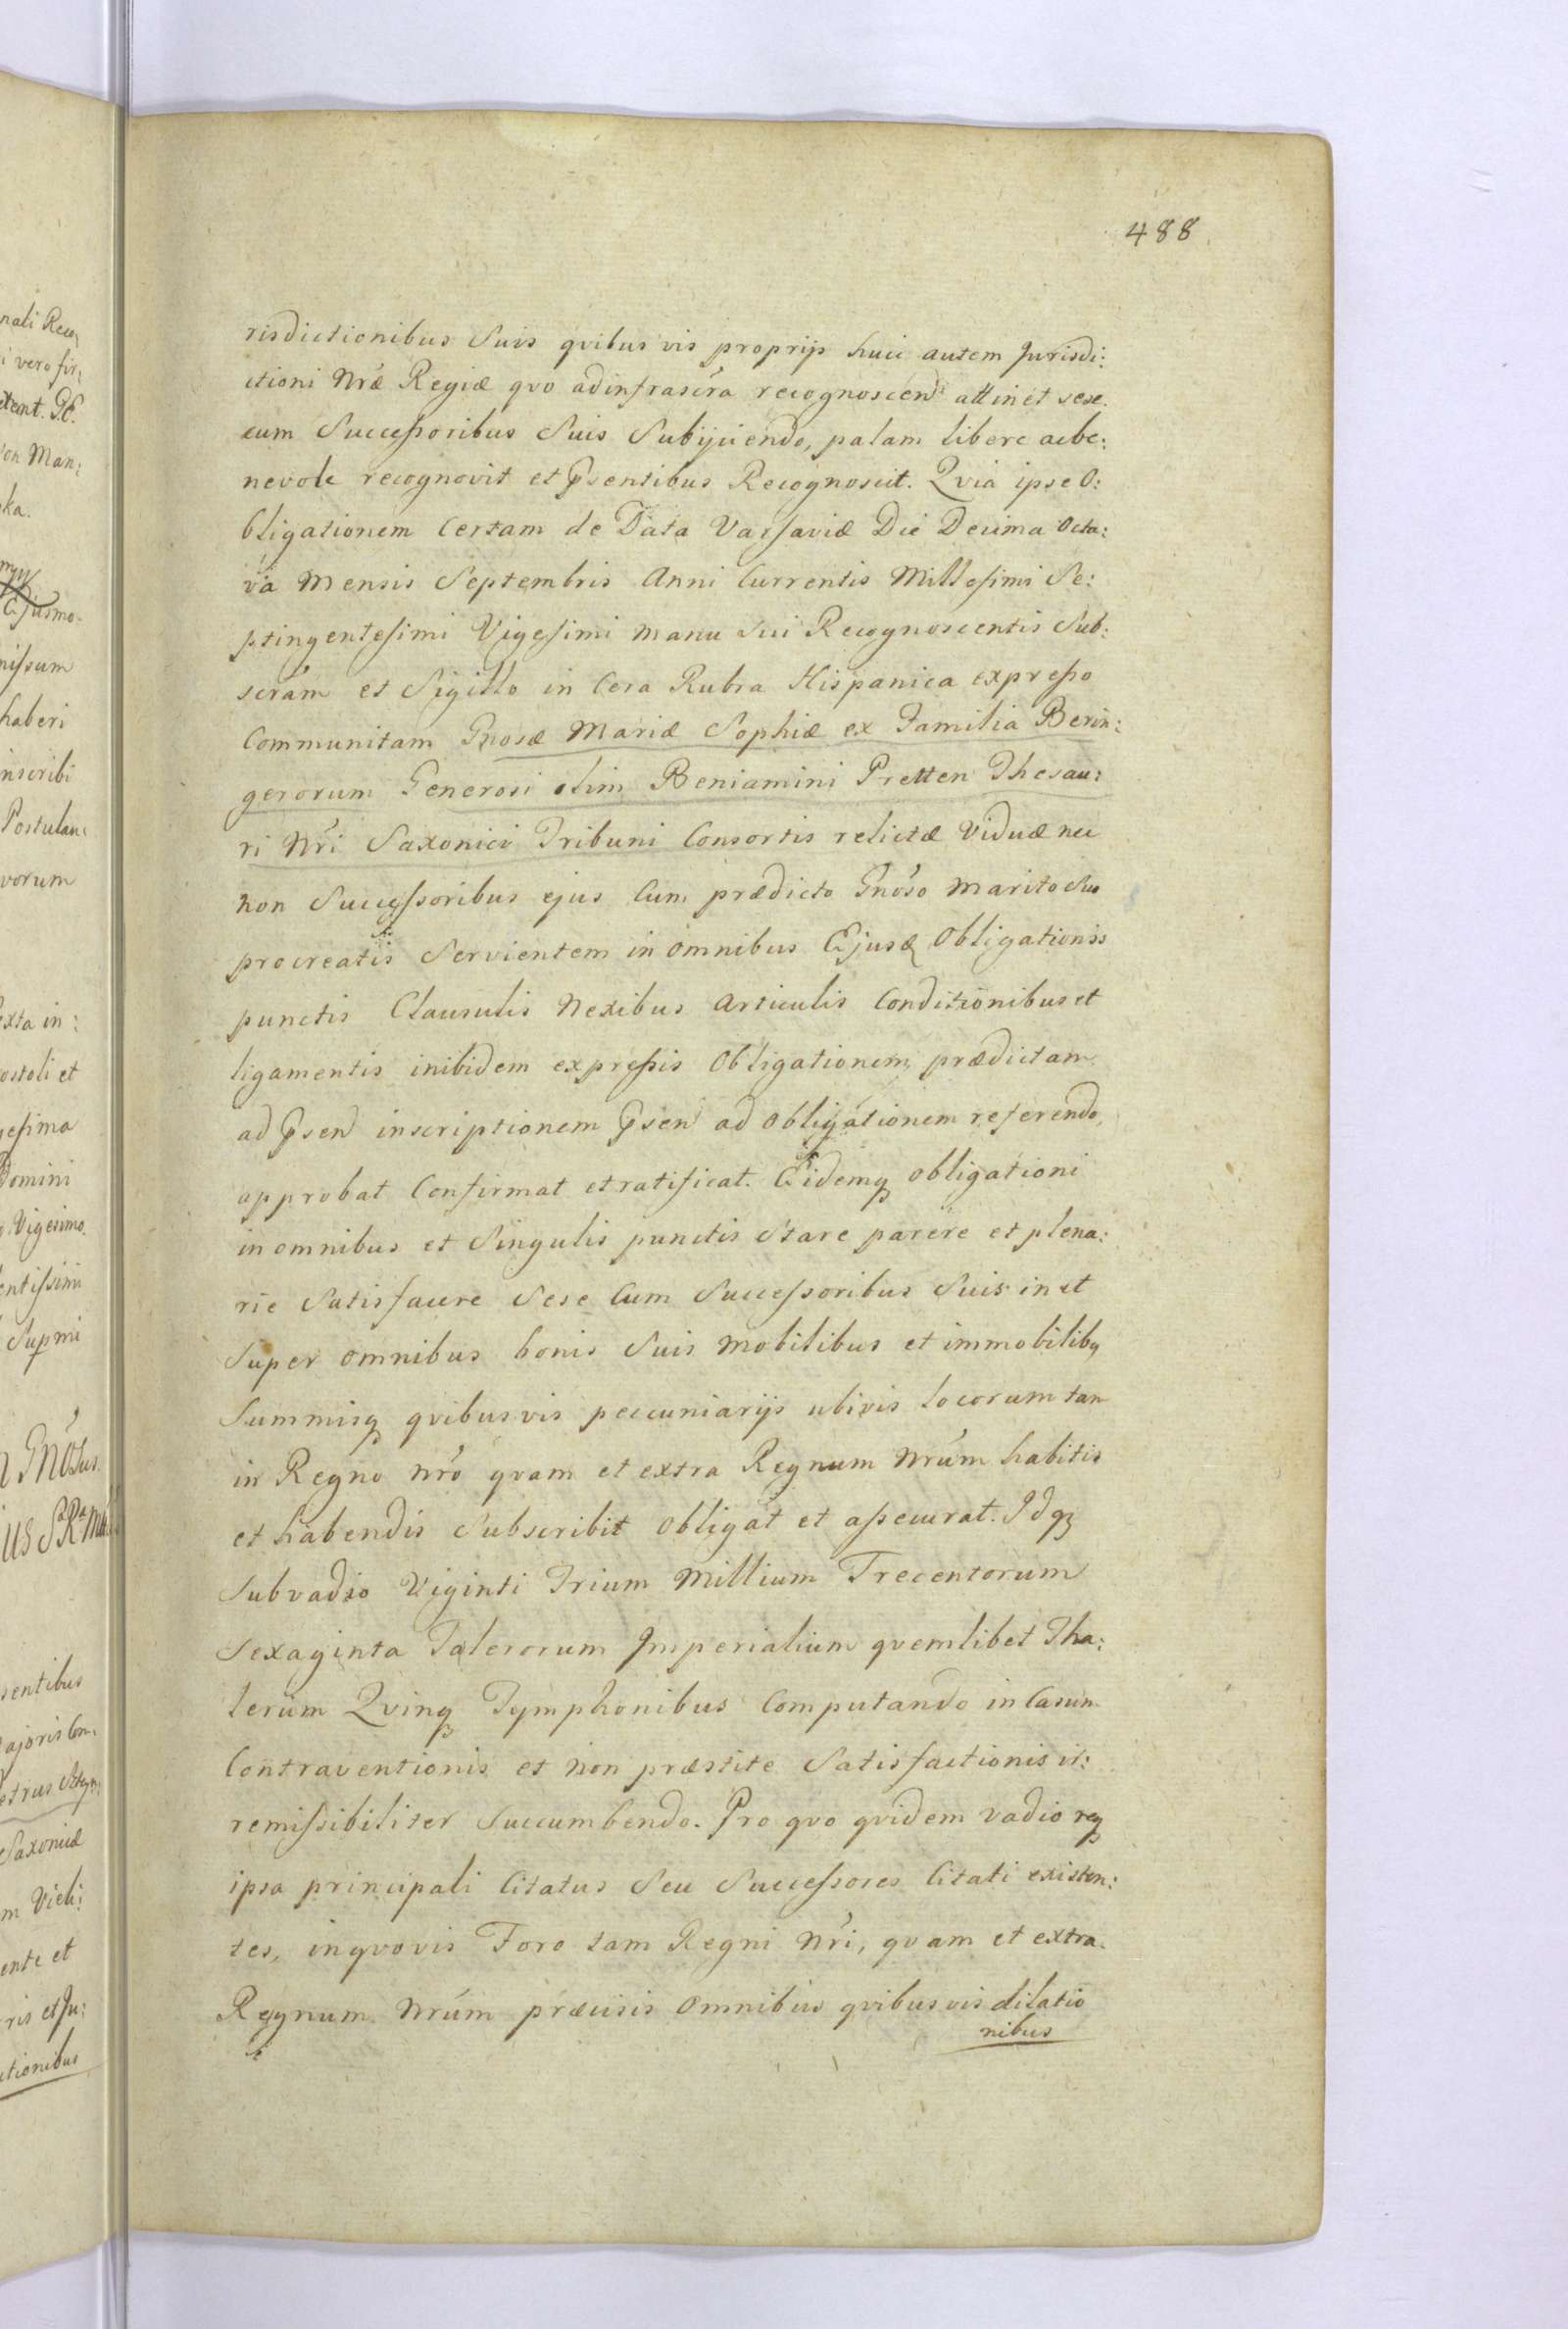 488
risdictionibus Suis qvibus vis proprijs huic autem Jurisdi:
ctioni Nrǽ Regiæ qvo ad infrascŕa recognoscend attinet sese
cum Successoribus Suis Subijciendo, palam libere ac be:
nevole recognovit et Psentibus Recognoscit. Qvia ipse O:
bligationem Certam de Data Varsaviæ Die Decima Octa:
va Mensis Septembris Anni Currentis Millesimi Se:
ptingentesimi Vigesimi Manu Sui Recognoscentis Sub:
scŕam et Sigillo in Cera Rubra Hispanica expresso
Communitam Gnosæ Mariæ Sophiæ ex Familia Berin:
gerorum Generosi olim Beniamini Pretten Thesau:
ri Nŕi Saxonici Tribuni Consortis relictæ Viduæ nec
non Successoribus ejus Cum prædicto Gnóso Marito Suo
procreatis Servientem in omnibus Ejusd Obligationis
punctis Clausulis Nexibus Articulis Conditionibus et
ligamentis inibidem expressis Obligationem prædictam
ad Psen inscriptionem Psen ad Obligationem referendo,
approbat Confirmat et ratificat. Eidemq obligationi
in omnibus et Singulis punctis Stare parere et plena:
rie Satisfacere Sese Cum Successoribus Suis in et
Super omnibus bonis Suis Mobilibus et immobilibq
Summisq qvibusvis peccuniarijs ubivis locorum tam
in Regno nŕo qvam et extra Regnum Nŕum habitis
et habendis Subscribit obligat et assecurat. Idq
Sub vadio Viginti Trium Millium Trecentorum
Sexaginta Talerorum Imperialium qvemlibet Tha:
lerum Qvinq Tymphonibus Computando in Casum
Contraventionis et Non præstite Satisfactionis ir:
remissibiliter Succumbendo. Pro qvo qvidem vadio req
ipsa principali Citatus Seu Successores Citati existen:
tes, in qvovis Foro tam Regni Nŕi, qvam et extra
Regnum Nŕum præcisis Omnibus qvibusvis dilatio
nibus